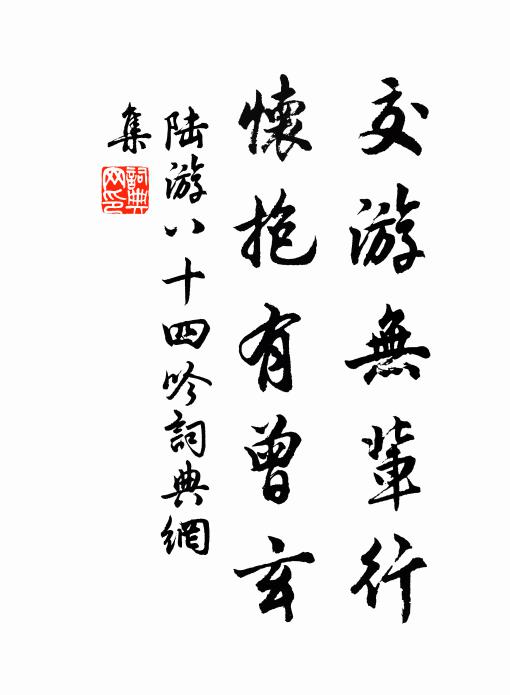 交游無輩行
懷抱有曾玄
陸游八十四吟詞典網
集
詞典网印